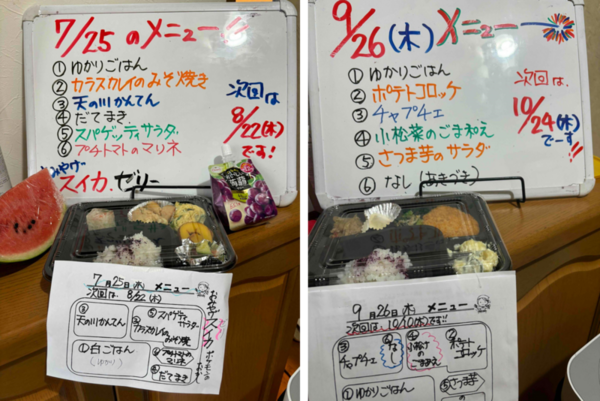 7/25のメニュー
① ゆかりごはん
② カラスカレイのみそ焼き
③ 天の川かんてん
④ だてまき
⑤ スパゲッティサラダ
⑥ プチトマトのマリネ
おみやげ
スイカ、ゼリー
次回は
8/22(木)
です!
7月25日(木) メニュー
次回は、8/22(木)
③ 天の川かんてん
⑤ スパゲッティサラダ
② カラスカレイのみそ焼き
① 白ごはん
(ゆかり)
⑥ プチトマトのマリネ
④ だてまき
9/26(木)メニュー
① ゆかりごはん
② ポテトコロッケ
③ チャプチェ
④ 小松菜のごまあえ
⑤ さつま芋のサラダ
⑥ なし(あきづき)
次回は、
10/24(木)
でーす!!
9月26日(木) メニュー
次回は、10/10(木)です!!
③ チャプチェ
④ 小松菜のごまあえ
② ポテトコロッケ
① ゆかりごはん
⑤ さつま芋の